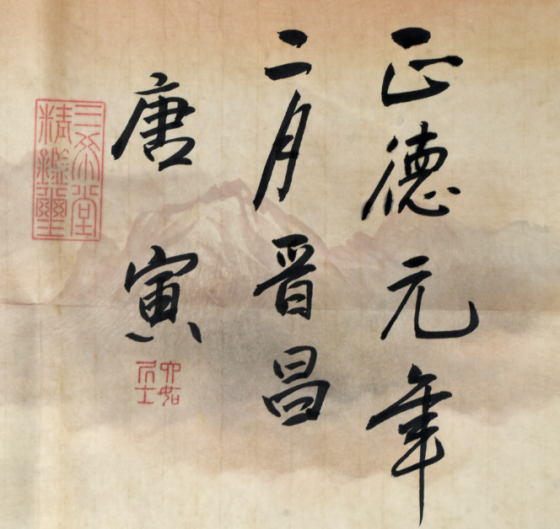 正德元年
二月晋昌
唐寅
六如居士
三希堂精鑑璽